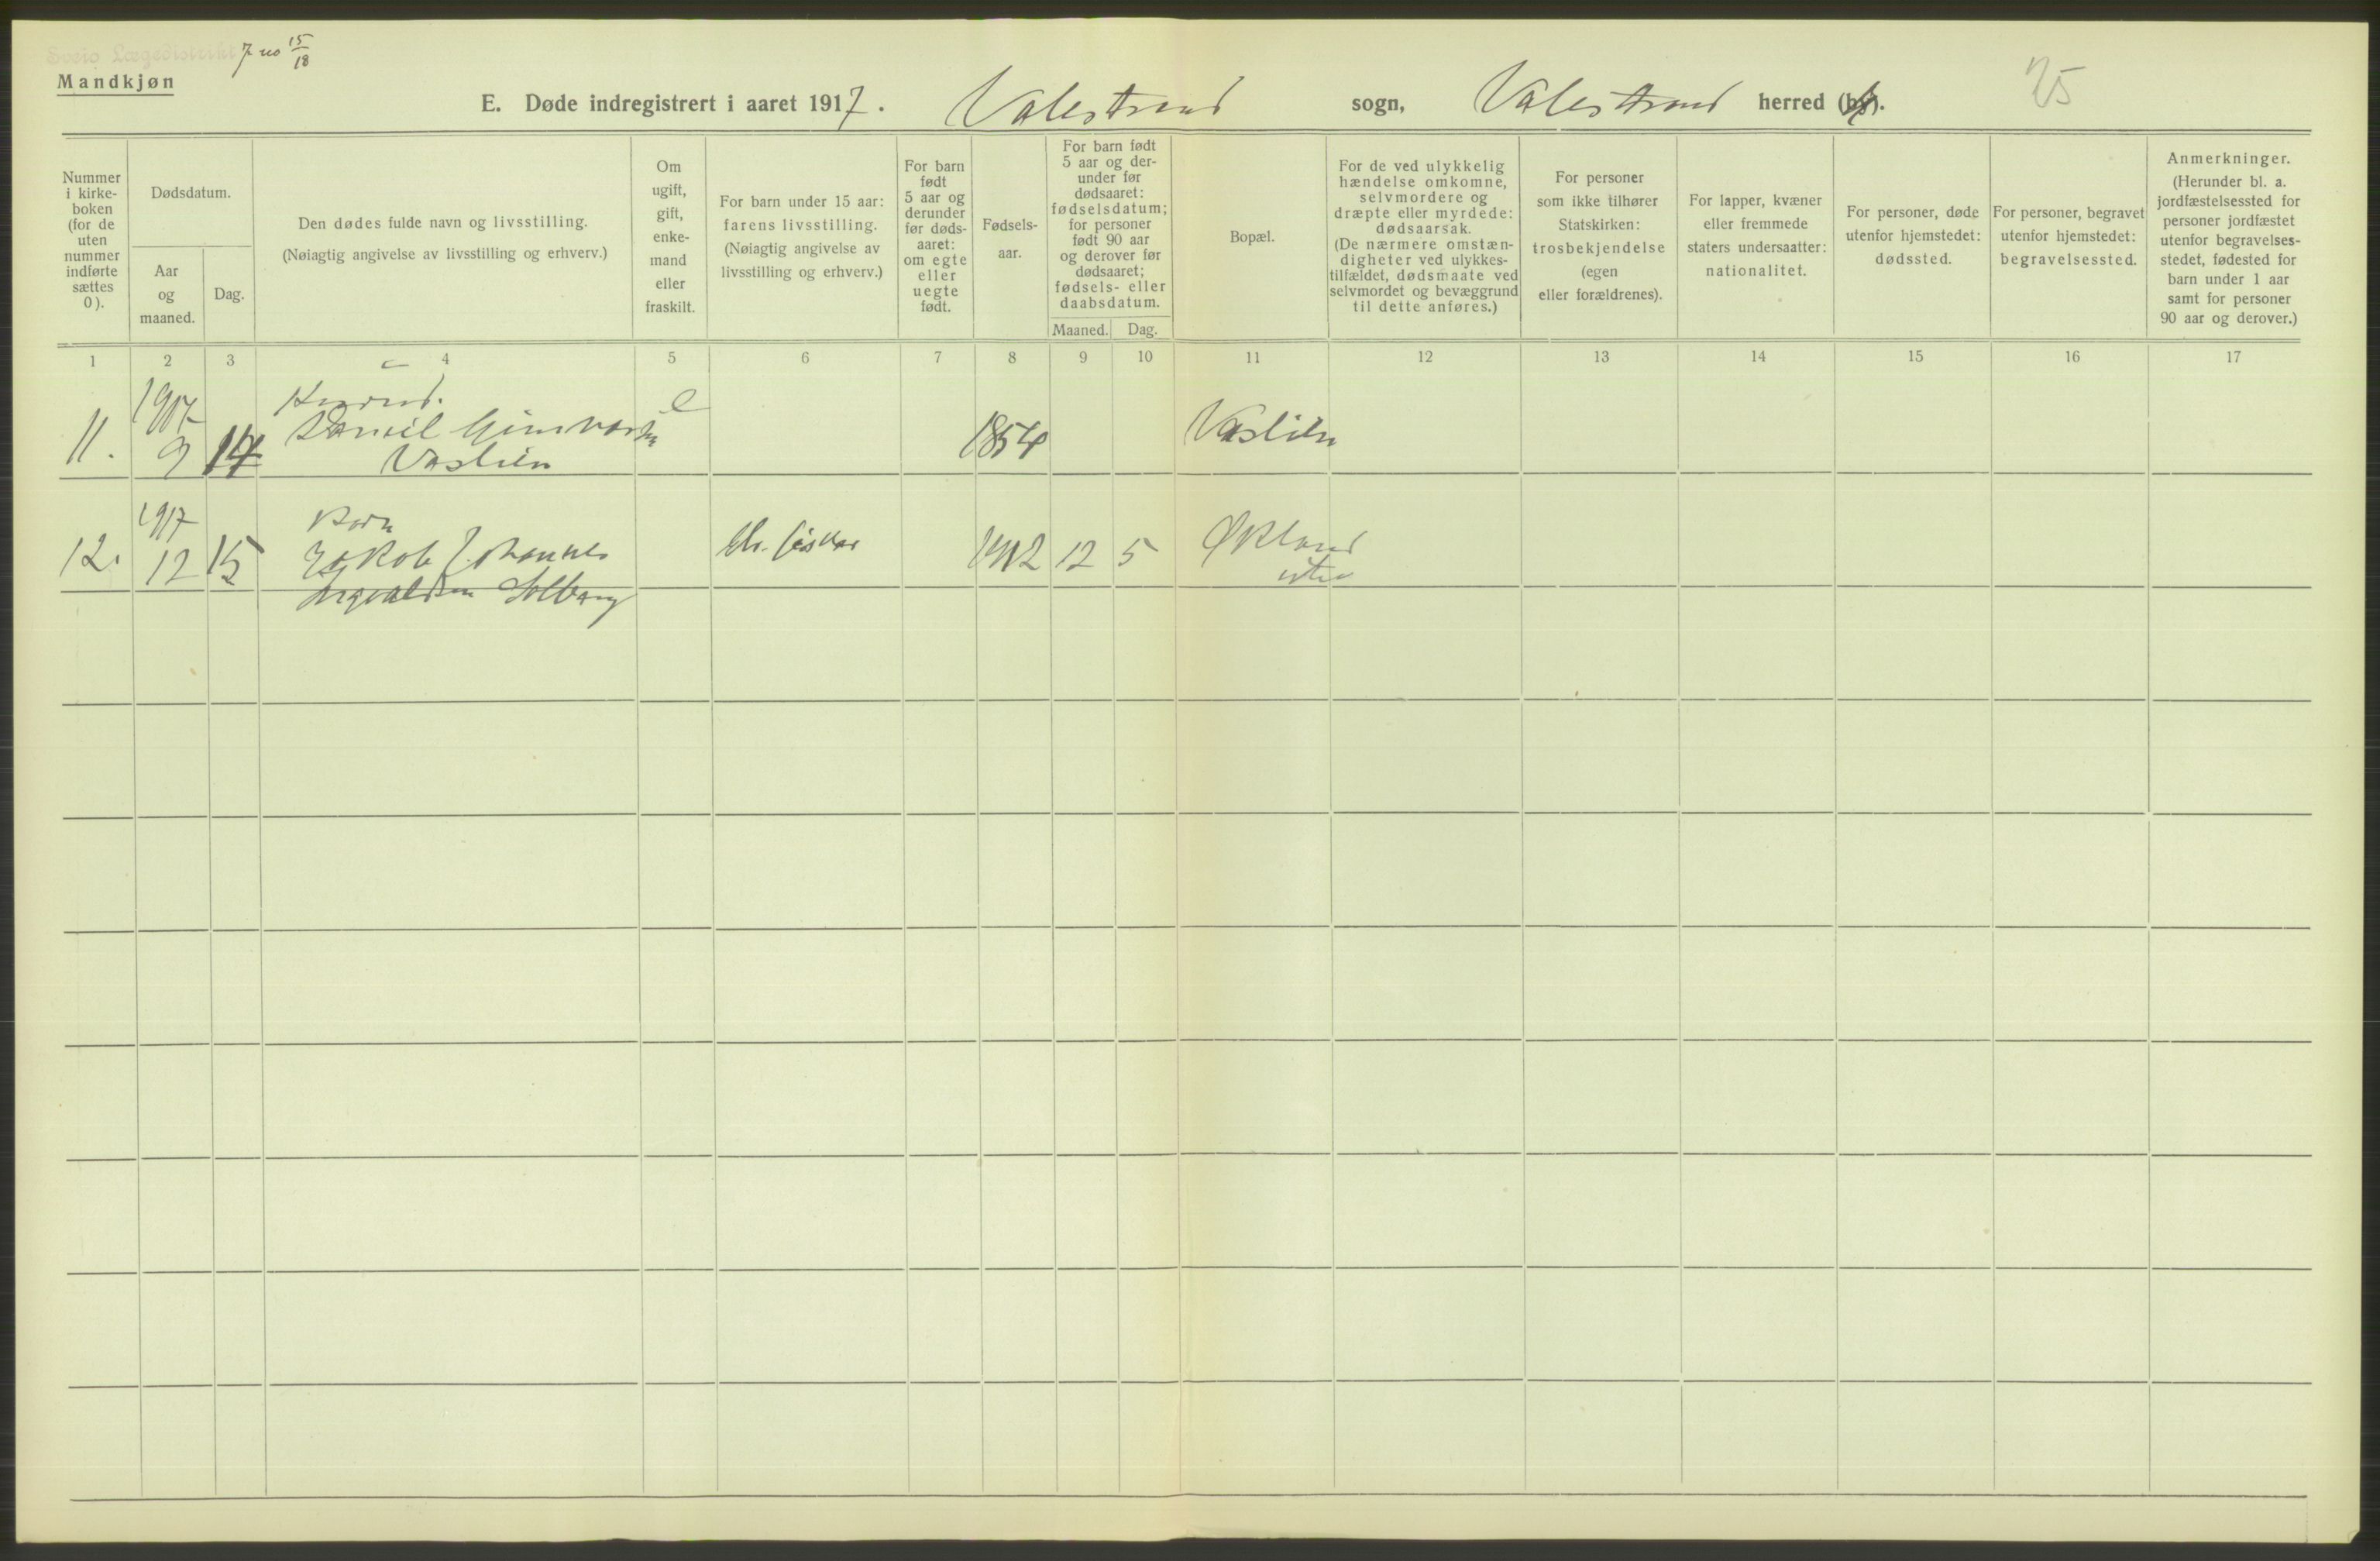 Sveio Lægedistrikt 7 no 15/18
Mandkjøn
E. Døde indregistrert i aaret 1917. Valestrand sogn, Valestrand herred (by). 25
Nummer i kirke-boken (for de uten nummer indførte sættes 0).
Dødsdatum.
Aar og maaned.
Dag.
Den dødes fulde navn og livsstilling.
(Nøiagtig angivelse av livsstilling og erhverv.)
Om ugift, gift, enke-mand eller fraskilt.
For barn under 15 aar: farens livsstilling.
(Nøiagtig angivelse av livsstilling og erhverv.)
For barn født 5 aar og derunder før døds-aaret: om egte eller uegte født.
Fødsels-aar.
For barn født 5 aar og der-under før dødsaaret: fødselsdatum; for personer født 90 aar og derover før dødsaaret; fødsels- eller daabsdatum.
Maaned. Dag.
Bopæl.
For de ved ulykkelig hændelse omkomne, selvmordere og dræpte eller myrdede: dødsaarsak.
(De nærmere omstæn-digheter ved ulykkes-tilfældet, dødsmaate ved selvmordet og bevæggrund til dette anføres.)
For personer som ikke tilhører Statskirken: trosbekjendelse (egen eller forældrenes).
For lapper, kvæner eller fremmede staters undersaatter: nationalitet.
For personer, døde utenfor hjemstedet: dødssted.
For personer, begravet utenfor hjemstedet: begravelsessted.
Anmerkninger.
(Herunder bl. a. jordfæstelsessted for personer jordfæstet utenfor begravelses-stedet, fødested for barn under 1 aar samt for personer 90 aar og derover.)
1 2 3 4 5 6 7 8 9 10 11 12 13 14 15 16 17
11. 1917 9 14
Daniel
Vaslien
e 1854 Vaslien
12. 1917 12 15
Barn
Jakob Johannes
Ingvaldsen Solberg
1912 12 5 Økland